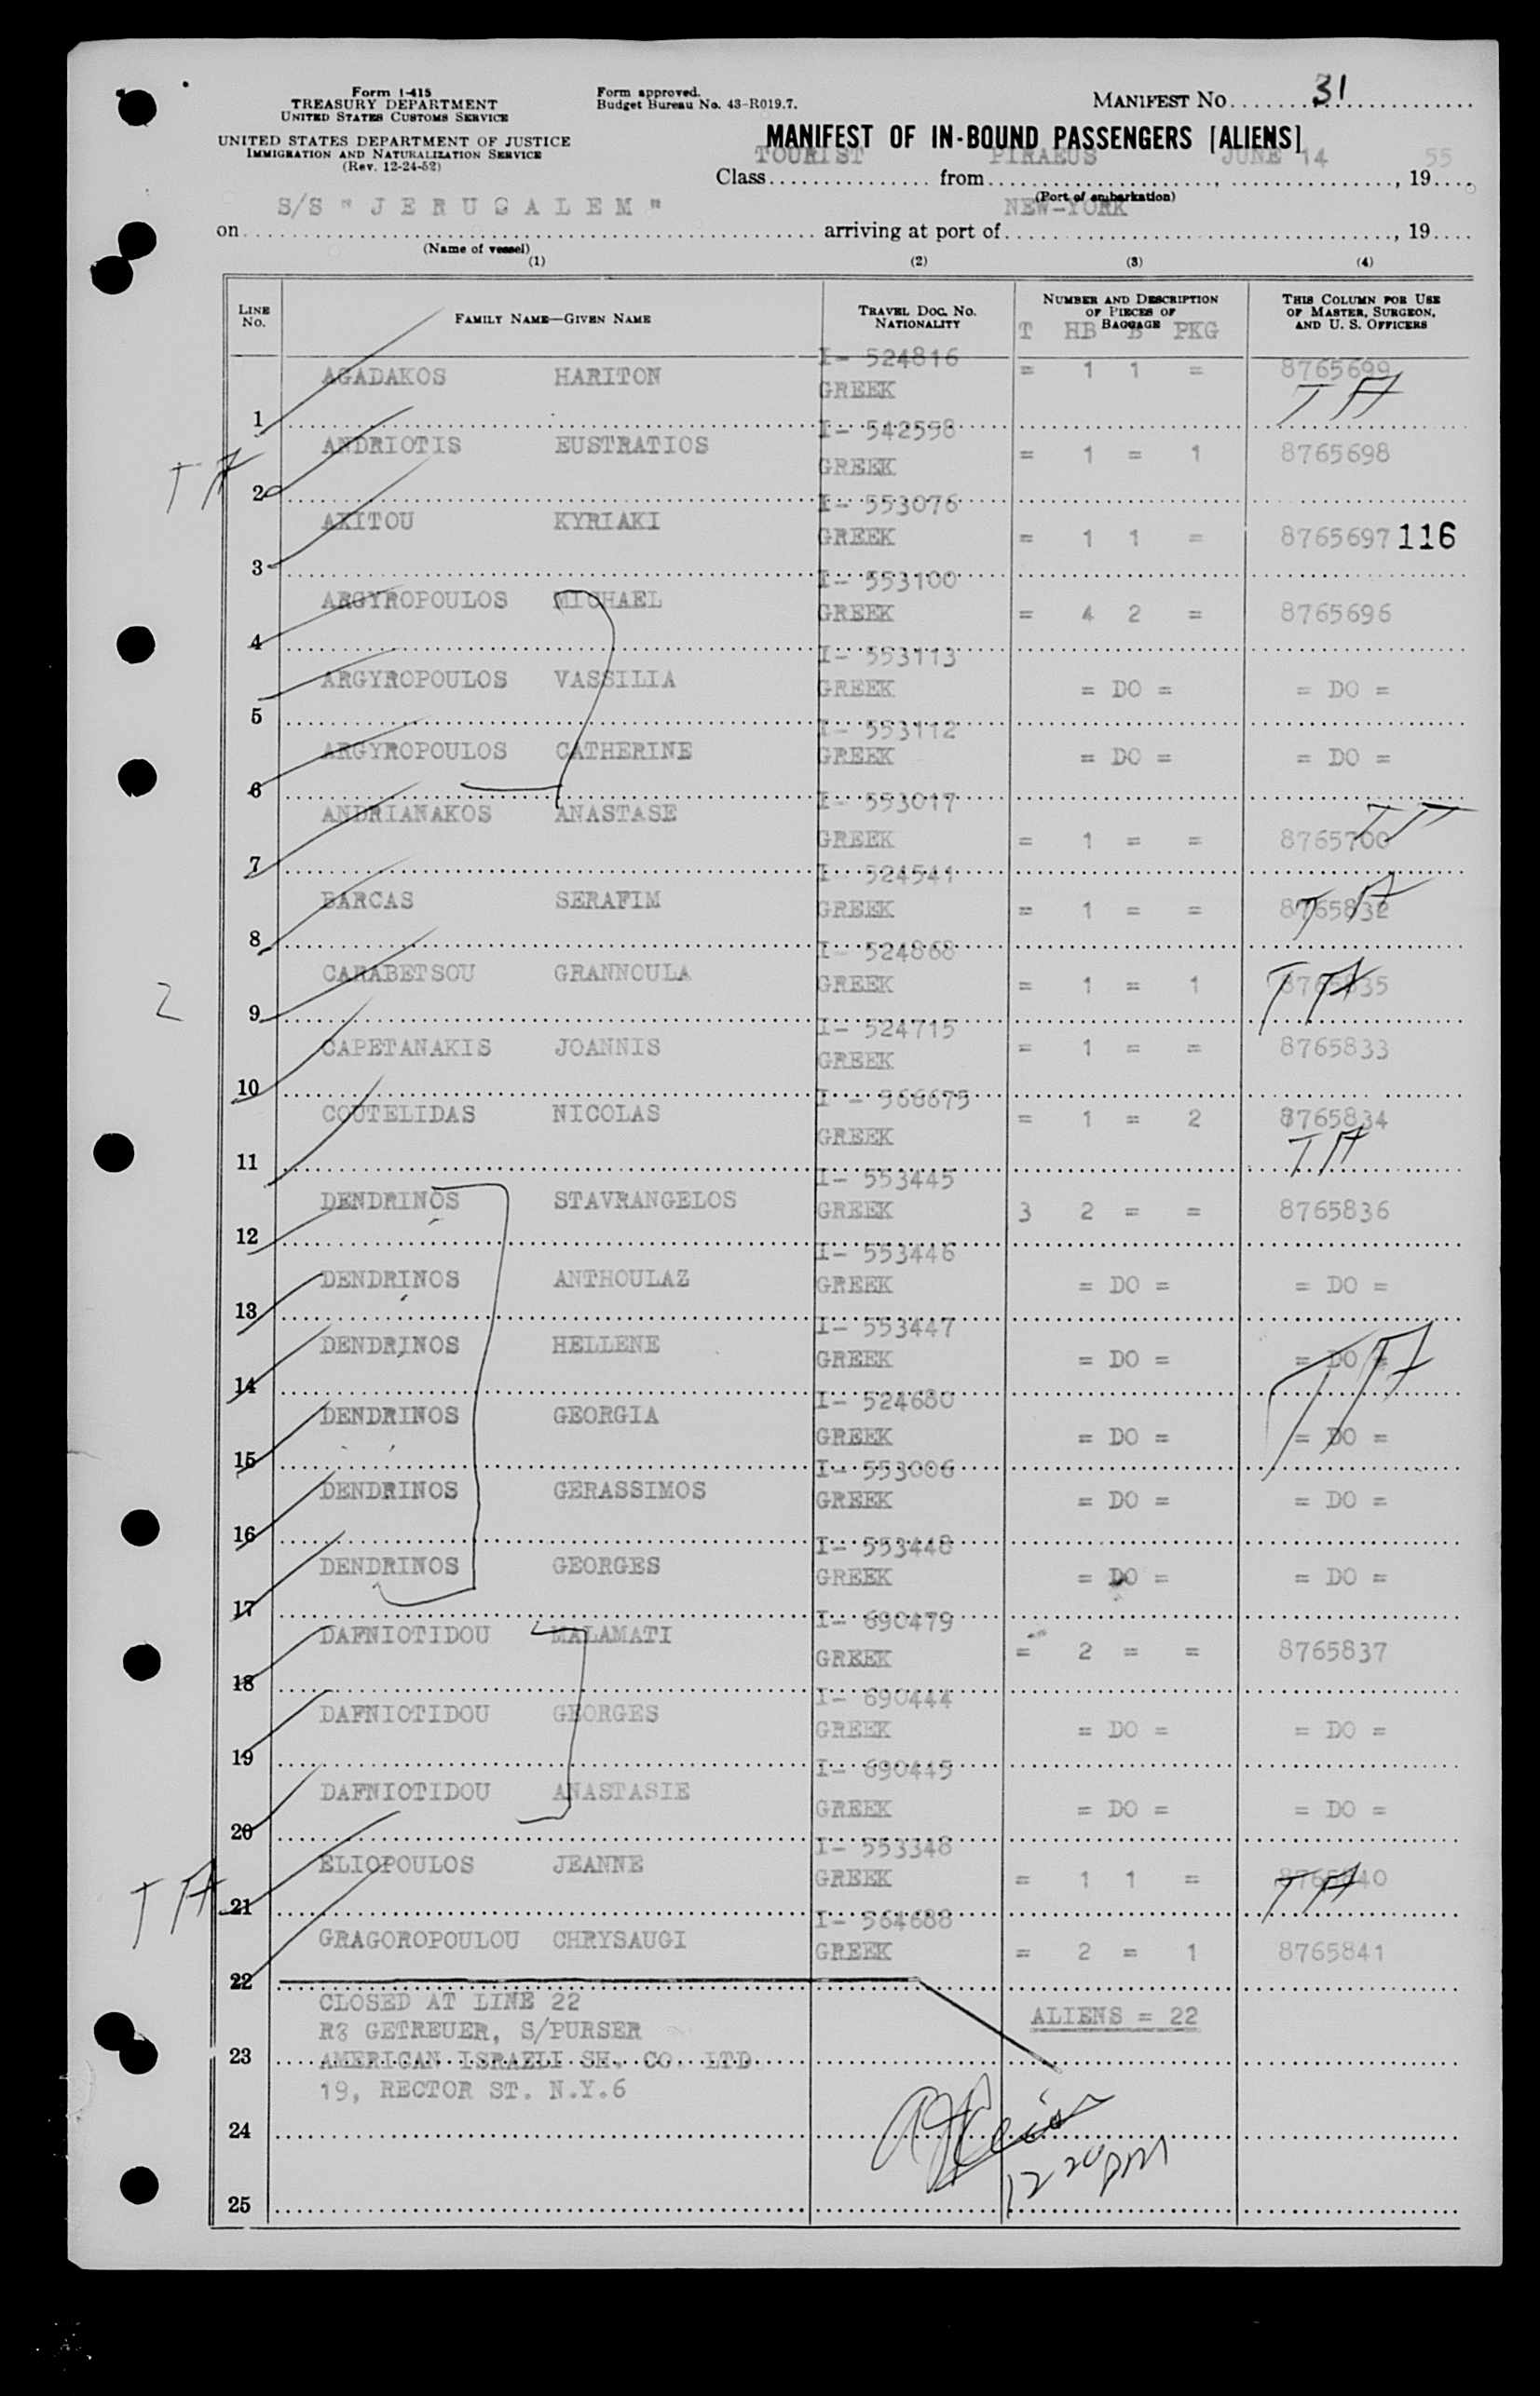 Form I-415
TREASURY DEPARTMENT
UNITED STATES CUSTOMS SERVICE
UNITED STATES DEPARTMENT OF JUSTICE
IMMIGRATION AND NATURALIZATION SERVICE
(Rev. 12-24-52)
Form approved.
Budget Bureau No. 43-R019.7.
MANIFEST NO. 31
MANIFEST OF IN-BOUND PASSENGERS [ALIENS]
Class TOURIST from PIRAEUS, JUNE 14, 1955
(Port of embarkation)
on S/S "JERUSALEM" arriving at port of NEW-YORK, 19
(Name of vessel)
(1) (2) (3) (4)
LINE NO. FAMILY NAME—GIVEN NAME TRAVEL DOC. NO. NATIONALITY NUMBER AND DESCRIPTION OF PIECES OF BAGGAGE THIS COLUMN FOR USE OF MASTER, SURGEON, AND U. S. OFFICERS
T HB B PKG
1 AGADAKOS HARITON I- 524816 GREEK = 1 1 = 8765699 TA
TA 2 ANDRIOTIS EUSTRATIOS I- 542558 GREEK = 1 = 1 8765698
3 AXITOU KYRIAKI I- 553076 GREEK = 1 1 = 8765697 116
4 ARGYROPOULOS MICHAEL I- 553100 GREEK = 4 2 = 8765696
5 ARGYROPOULOS VASSILIA I- 553113 GREEK = DO = = DO =
6 ARGYROPOULOS CATHERINE I- 553112 GREEK = DO = = DO =
7 ANDRIANAKOS ANASTASE I- 553017 GREEK = 1 = = 8765700
8 BARCAS SERAFIM I- 524541 GREEK = 1 = = 8765832 TA
2 9 CARABETSOU GRANNOULA I- 524868 GREEK = 1 = 1 8765835 TA
10 CAPETANAKIS JOANNIS I- 524715 GREEK = 1 = = 8765833
11 COUTELIDAS NICOLAS I - 566675 GREEK = 1 = 2 8765834 TA
12 DENDRINOS STAVRANGELOS I- 553445 GREEK 3 2 = = 8765836
13 DENDRINOS ANTHOULAZ I- 553446 GREEK = DO = = DO =
14 DENDRINOS HELLENE I- 553447 GREEK = DO = = DO = TA
15 DENDRINOS GEORGIA I- 524680 GREEK = DO = = DO =
16 DENDRINOS GERASSIMOS I- 553006 GREEK = DO = = DO =
17 DENDRINOS GEORGES I- 553448 GREEK = DO = = DO =
18 DAFNIOTIDOU MALAMATI I- 690479 GREEK = 2 = = 8765837
19 DAFNIOTIDOU GEORGES I- 690444 GREEK = DO = = DO =
20 DAFNIOTIDOU ANASTASIE I- 690445 GREEK = DO = = DO =
TA 21 ELIOPOULOS JEANNE I- 553348 GREEK = 1 1 = 8765840 TA
22 GRAGOROPOULOU CHRYSAUGI I- 564688 GREEK = 2 = 1 8765841
CLOSED AT LINE 22 ALIENS = 22
GETREUER, S/PURSER
23 AMERICAN ISRAELI SH. CO. LTD
19, RECTOR ST. N.Y.6
24
12 20 PM
25